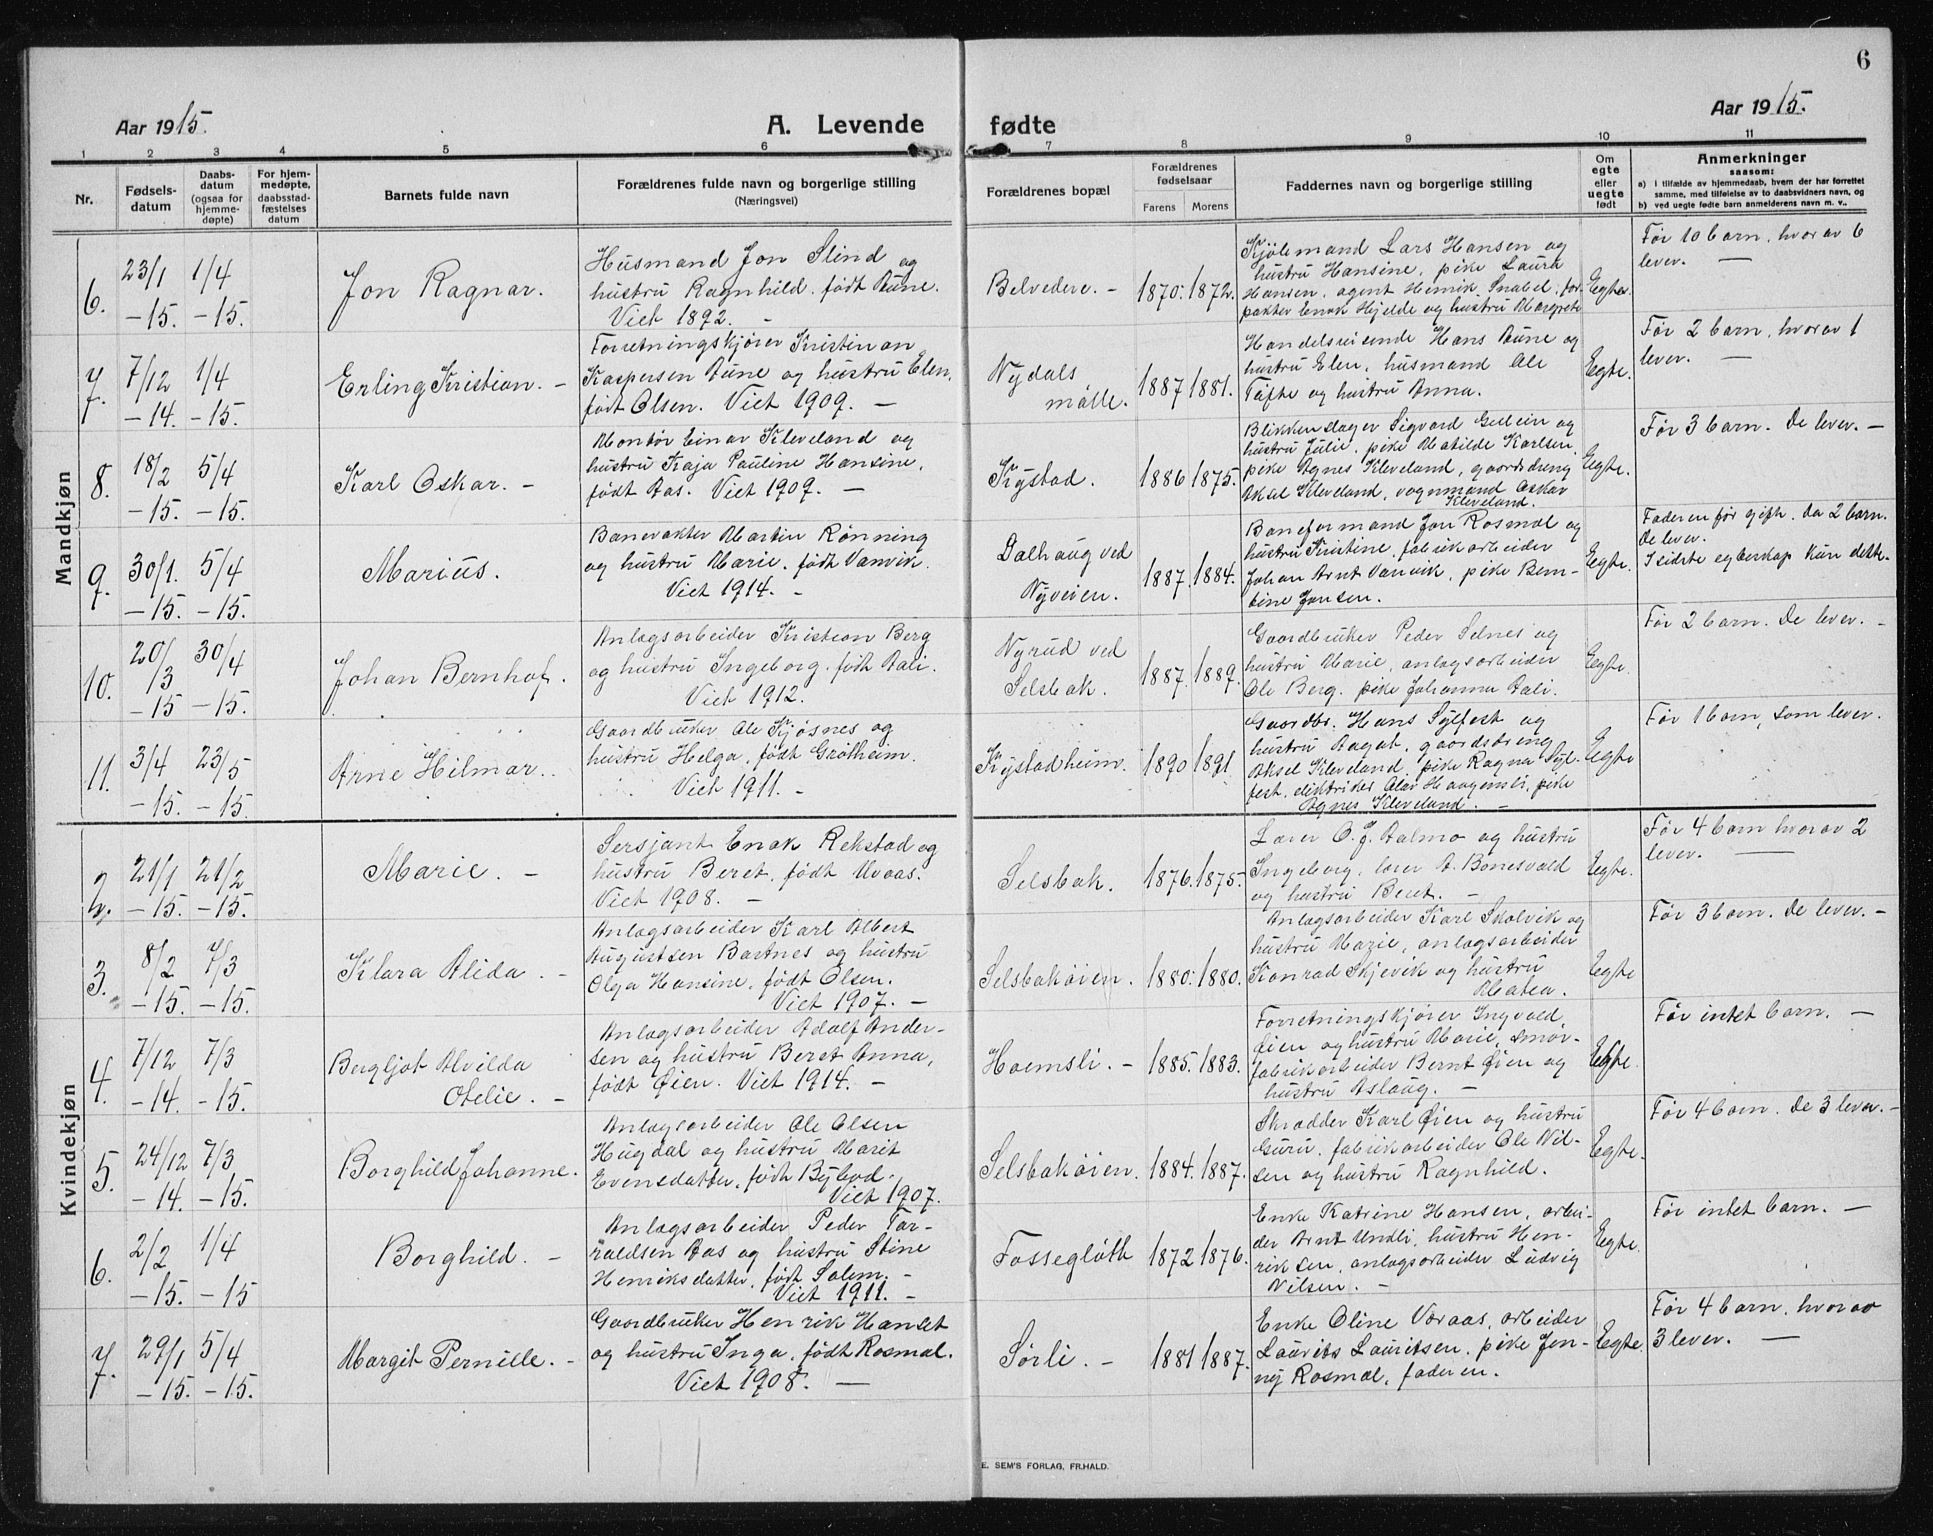 6
Aar 1915.
A. Levende fødte
Aar 1915.
1 2 3 4 5 6 7 8 9 10 11
Nr.
Fødsels-
datum
Daabs-
datum
(ogsaa for
hjemme-
døpte)
For hjem-
medøpte,
daabsstad-
fæstelses
datum
Barnets fulde navn
Forældrenes fulde navn og borgerlige stilling
(Næringsvei)
Forældrenes bopæl
Forældrenes
fødselsaar
Farens Morens
Faddernes navn og borgerlige stilling
Om
egte
eller
uegte
født
Anmerkninger
saasom:
a) i tilfælde av hjemmedaab, hvem der har forrettet
samme, med tilføielse av to daabsvidners navn, og
b) ved uegte fødte barn anmelderens navn m. v..
Mandkjøn
6.
23/1
-15.
1/4
-15.
Jon Ragnar.
Husmand Jon Slind og
hustru Ragnhild, født Aune.
Viet 1892. -
Belvedere. -
1870. 1872.
Kjølemand Lars Hansen og
hustru Hansine, pike Laura
Hansen, agent Henrik Snabel, for
pakter Enok Hjelde og hustru Margrete
Egte.
Før 10 barn, hvorav 6
lever. —
7.
7/12
-14.
1/4
-15.
Erling Kristian. -
Forretningskjører Kristian
Kaspersen Aune og hustru Elen,
født Olsen. Viet 1909. —
Nydals
mølle.
1887 1881.
Handelsreisende Hans Aune og
hustru Elen, husmand Ole
Tøfte og hustru Anna.
Egte.
Før 2 barn, hvorav 1
lever. —
8.
18/2
-15.
5/4
-15.
Karl Oskar. -
Montør Einar Kleveland og
hustru Kaja Pauline Hansine,
født Aas. Viet 1909. —
Kystad.
1886 1875.
Blikkenslager Sigvard Gulein og
hustru Julie, pike Matilde Karlsen,
pike Agnes Kleveland, gaardsdreng
Aksel Kleveland, vognmand Oskar
Kleveland.
Egte.
Før 3 barn. De lever. -
9.
30/1.
-15.
5/4
-15.
Marius.
Banevakter Martin Rønning
og hustru Marie, født Vanvik.
Viet 1914. -
Dalhaug ved
Nyveien.
1887. 1884.
Baneformand Jon Rosmæl og
hustru Kristine, fabrikarbeider
Johan Arnt Vanvik, pike Bern-
tine Jonsen.
Egte.
Faderen før gift, da 2 barn.
De lever.
I sidste egteskap kun dette.
10.
20/3
-15
30/4
-15.
Johan Bernhof.
Anlægsarbeider Kristian Berg
og hustru Ingeborg, født Dali.
Viet 1912.
Nyrud ved
Selsbak.
1887. 1889.
Gaardbruker Peder Selnes og
hustru Marie, anlægsarbeider
Ole Berg, pike Johanna Dali.
Egte.
Før 2 barn. De lever. -
11.
3/4
-15
23/5
-15
Arne Hilmar.
Gaardbruker Ole Kjøsnes og
hustru Helga, født Grøtheim.
Viet 1911. -
Kystadheim.
1890 1891
Gaardbr. Hans Sylfest og
hustru Aagot, gaardsdreng
Aksel Kleveland, pike Ragna Syl-
fest, elektriker Olav Haugensli, pike
Agnes Kleveland. -
Egte
Før 1 barn, som lever.
Kvindekjøn
2.
21/1
-15.
21/2
-15.
Marie. -
Sersjant Enok Rekstad og
hustru Beret, født Uvaas.
Viet 1908. -
Selsbak.
1876. 1875.
Lærer O. J. Dalmo og hustru
Ingeborg, lærer A. Bonesvald
og hustru Beret. -
Egte.
Før 4 barn hvorav 2
lever. —
3.
8/2
-15.
7/3
-15.
Klara Alida. -
Anlægsarbeider Karl Albert
Augustsen Bartnes og hustru
Olga Hansine, født Olsen.
Viet 1907. -
Selsbakøien.
1880. 1880.
Anlægsarbeider Karl Skalvik og
hustru Marie, anlægsarbeider
Konrad Skjevik og hustru
Matea.
Egte
Før 3 barn. De lever. -
4.
7/12
-14.
7/3
-15.
Bergljot Alvilda
Otelie. -
Anlægsarbeider Adolf Ander-
sen og hustru Beret Anna,
født Øien. Viet 1914. -
Hoemsli. -
1885. 1883.
Forretningskjører Ingvald
Øien og hustru Marie, smør-
fabrikarbeider Bernt Øien og
hustru Aslaug. -
Egte.
Før intet barn. —
5.
24/12
-14.
7/3
-15.
Borghild Johanne.
Anlægsarbeider Ole Olsen
Hugdal og hustru Marit
Evensdatter, født Bylød.
Viet 1907.
Selsbakøien.
1884. 1887.
Skrædder Karl Øien og hustru
Guru, fabrikarbeider Ole Nil-
sen og hustru Ragnhild.
Egte.
Før 4 barn. De 3 lever. -
6.
2/2
-15.
1/4
-15
Borghild. -
Anlægsarbeider Peder Tar-
raldsen Aas og hustru Stine
Henriksdatter, født Solem. -
Viet 1911. -
Fossegløtt
1872 1876.
Enke Katrine Hansen, arbei-
der Arnt Undli, hustru Hen-
riksen, anlægsarbeider Ludvig
Nilsen. -
Egte.
Før intet barn. —
7.
29/1
-15.
5/4
-15.
Margit Pernille. -
Gaardbruker Henrik Hanset
og hustru Inga, født Rosmæl.
Viet 1908. —
Sørli. -
1881 1887.
Enke Oline Voraas, arbeider
Laurits Lauritsen, pike Jen-
ny Rosmæl, faderen.
Egte.
Før 4 barn, hvorav
3 lever. —
E. SEM'S FORLAG, FR.HALD.